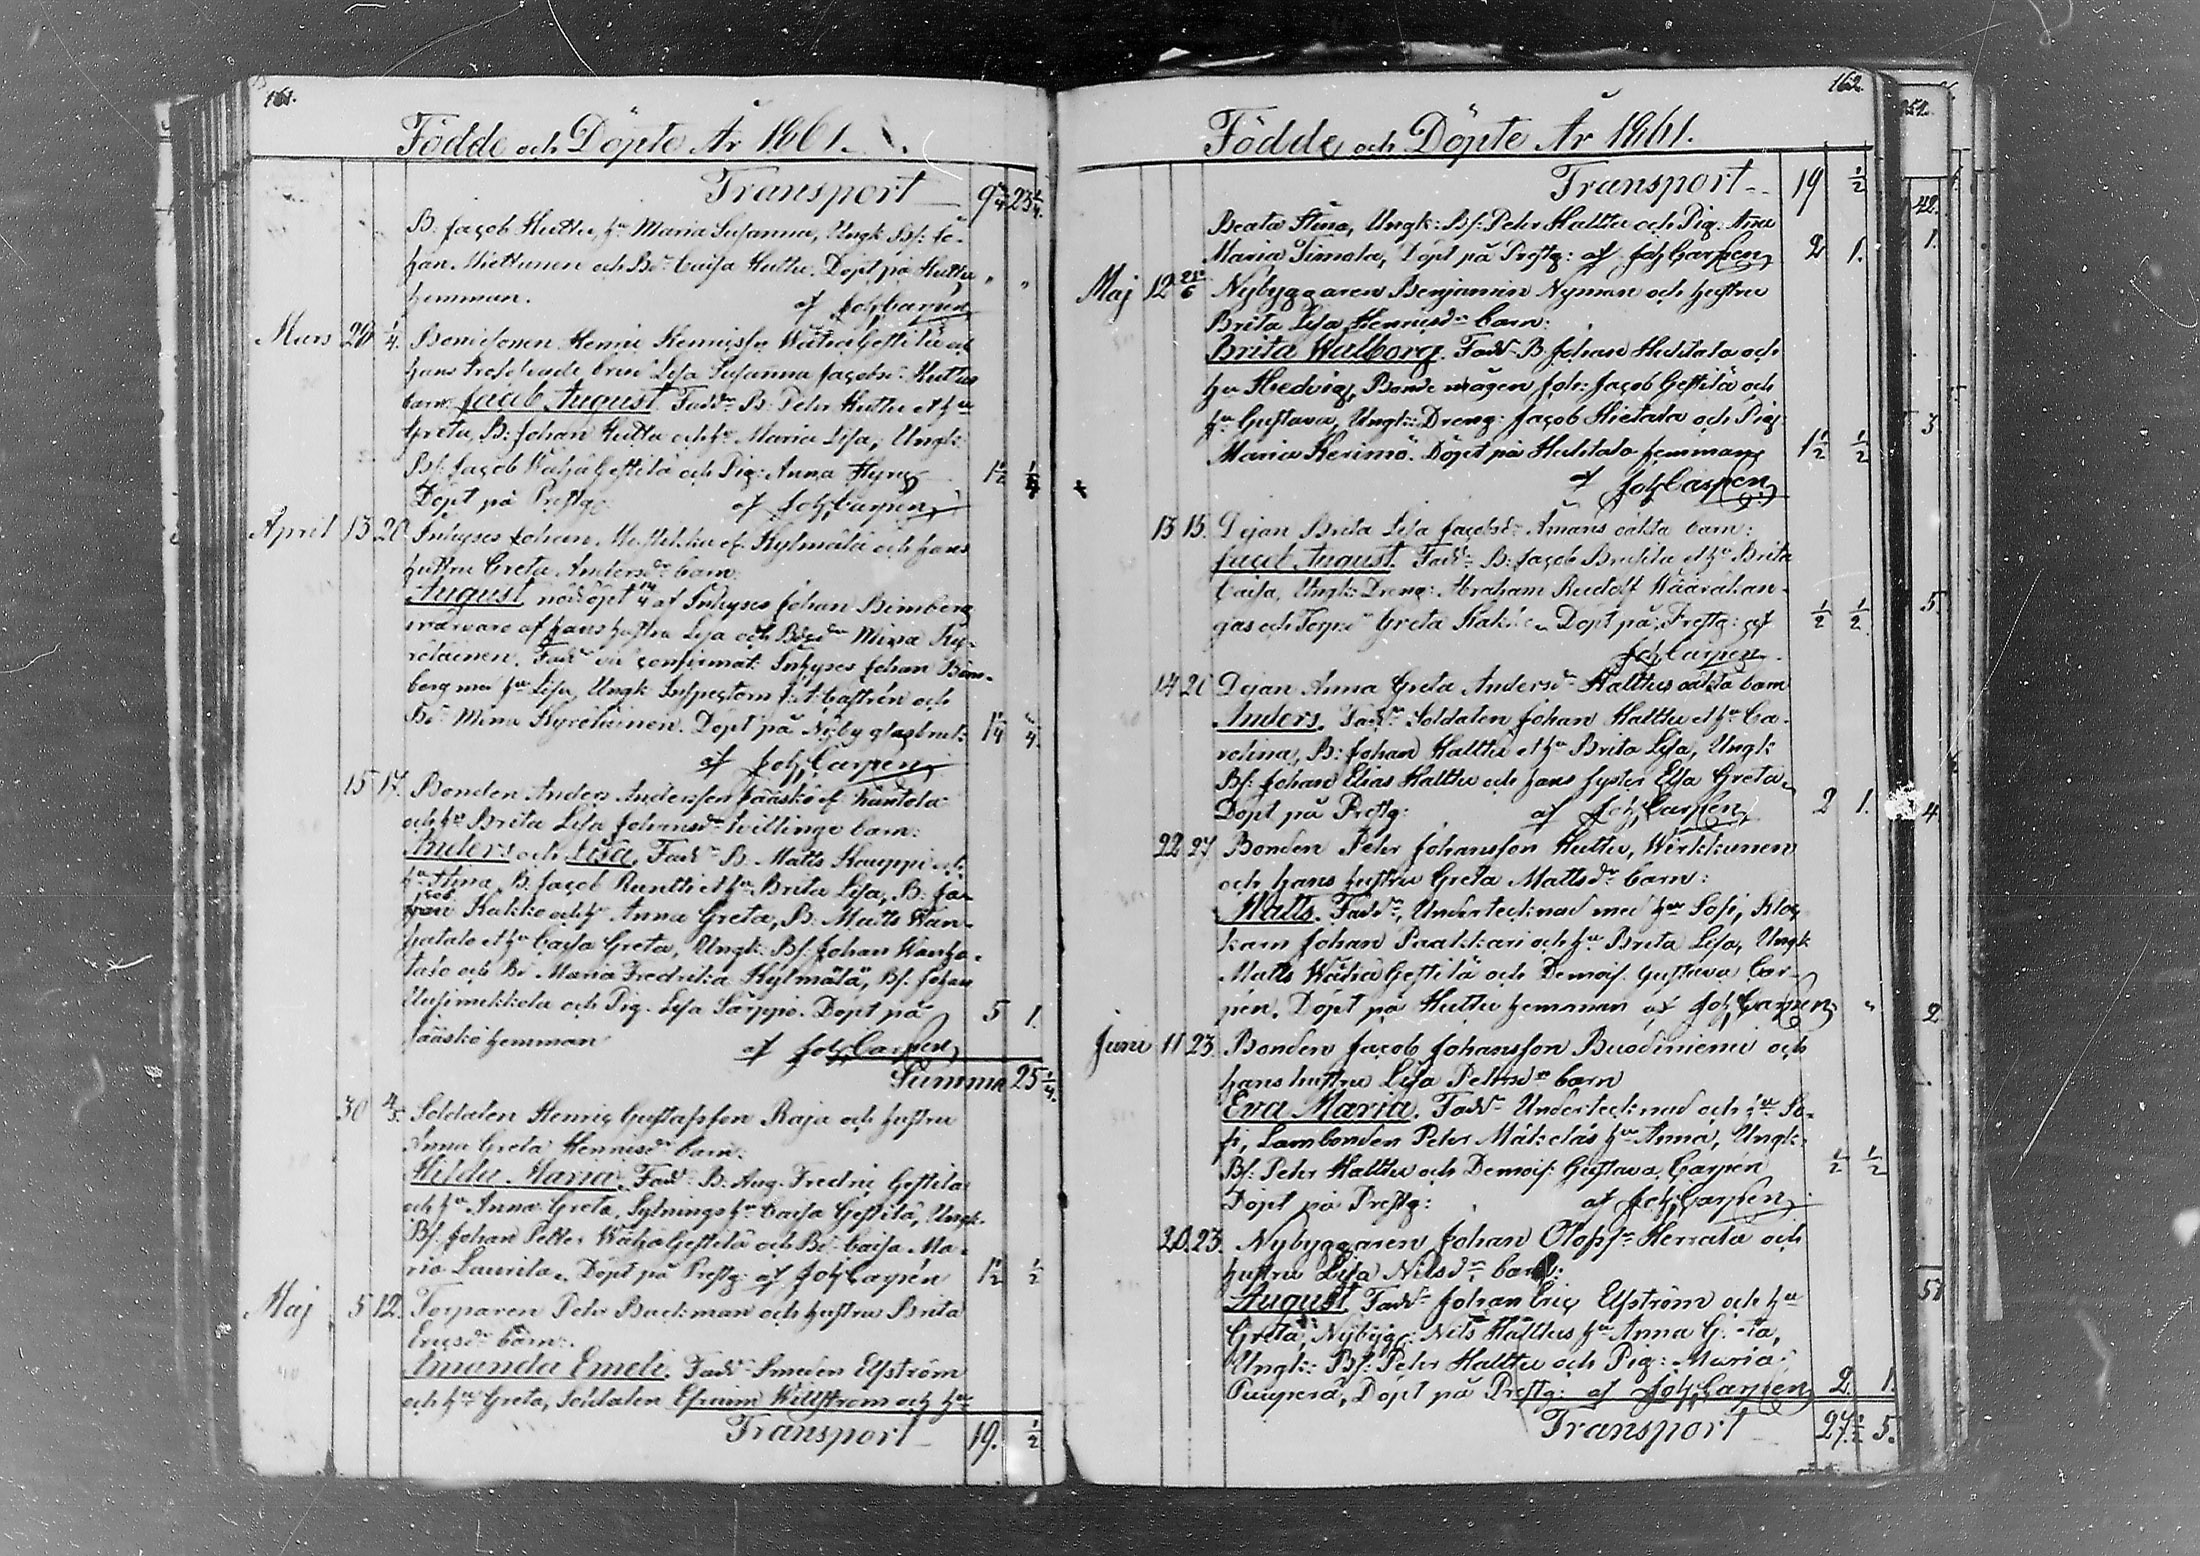 161.
Födde och Döpte År 1861.
Transport
B. Jacob Huttu, hu Maria Susanna, Ungk: Bs: Jo-
han Miettunen och Bdr Caisa Huttu. Döpt på Huttu
hemman. af Joh Carpén
Mars 29 1/4. Bondesonen Henric Henricss. Wähä Hestilä och
hans trolofvade brud Lisa Susanna Jacobsdr Huttus
barn: Jacob August. Faddr B: Petr Huttu et hu
Greta, B: Johan Huttu och hu Maria Lisa, Ungk:
Bs: Jacob Wähä Hestilä och Pig: Anna Hyry 1 1/2 1/4
Döpt på Prestg: af Joh Carpén
April 13 20 Inhyses Johan af Kylmälä och hans
hustru Greta Andersdr barn:
August nöddöpt 14/4 af Inhyses Johan Bimberg
i närvaro af hans hustru Lisa och Bdr Mina Ky-
röläinen. Faddr vid confirmat: Inhyses Johan Bim-
berg med hu Lisa, Ungk: Inspectorn Castrén och
Bdr Mina Kyröläinen. Döpt på Nyby glasbruk 1 1/4
af Joh Carpén
15 17. Bonden Anders Andersson Jääskö af
och hu Brita Lisa Johansdr tvillinge barn:
Anders och Lisa. Faddr B. Matts Kauppi och
hu Stina, B. Jacob Runtti et hu Brita Lisa, B. Ja-
cob Kakko och hu Anna Greta, B. Matts Wan-
hatalo et hu Caisa Greta, Ungk: Bs: Johan Wanha-
talo och Bdr Maria Fredrika Kylmälä, Bs: Johan
Uusimikkola och Pig. Lisa Särppi. Döpt på 5 1.
Jääskö hemman af Joh Carpén
Summa 25 1/4.
30 4/5. Soldaten Henric Gustafsson Raja och hustru
Anna Greta Henricsdr barn:
Hilda Maria. Faddr B. Aug. Fredric Hestilä
och hu Anna Greta, Sytnings hu Caisa Hestilä, Ungk:
Bs: Johan Petter Wähä Hestilä och Bdr Caisa Ma-
ria Laurila. Döpt på Prestg: af Joh Carpén 1 1/2 1/2
Maj 5 12. Torparen Petr Backman och hustru Brita
Ericsdr barn:
Amanda Emeli. Faddr Smeden Elfström
och hu Greta, Soldaten Efraim Willström och hu
Transport 19. 1/2
162.
Födde och Döpte År 1861.
Transport 19 1/2
Beata Stina, Ungk: Bs: Petr Halttu och Pig: Anna
Maria Timola, Döpt på Prestg: af Joh Carpén 2 1.
Maj 12 Nybyggaren Benjamin Nyman och hustru
Brita Lisa Henricsdr barn:
Brita Walborg. Faddr B. Johan Huhtala och
hu Hedvig, Bonde mågen Joh: Jacob Hestilä och
hu Gustava, Ungk: Dreng: Jacob Hietala och Pig
Maria Kerimö. Döpt på Huhtala hemman 1 1/2 1/2
af Joh Carpén
13 15. Dejan Brita Lisa Jacobsdr Åmans oäkta barn:
Jacob August. Faddr B: Jacob et hu Brita
Caisa, Ungk: Dreng: Abraham Rudolf Wäärälan-
gas och Torpdr Greta Döpt på Prestg: af 1/2 1/2
Joh Carpén
14 20 Dejan Anna Greta Andersdr Halttus oäkta barn
Anders. Faddr Soldaten Johan Halttu et hu Ca-
rolina, B: Johan Halttu et hu Brita Lisa, Ungk:
Bs: Johan Elias Halttu och hans syster Elsa Greta.
Döpt på Prestg: af Joh Carpén 2 1.
22 27 Bonden Petr Johansson Huttu, Wirkkunen
och hans hustru Greta Mattsdr barn:
Matts. Faddr, Undertecknad med hu Sofi, Kloc-
karn Johan Paakkari och hu Brita Lisa, Ungk:
Matts Wähä Hestilä och Demois. Gustava Car-
pén. Döpt på Huttu hemman af Joh Carpén
Juni 11 23 Bonden Jacob Johansson Buodiniemi och
hans hustru Lisa Petersdr barn
Eva Maria. Faddr Undertecknad och hu So-
fi, Lambonden Petr Mäkeläs hu Anna, Ungk:
Bs: Petr Halttu och Demois: Gustava Carpén 1/2 1/2
Döpt på Prestg: af Joh Carpén
20. 23. Nybyggaren Johan Olofsson Herrala och
hustru Lisa Nilsdr barn:
August. Faddr Johan Eric Elfström och hu
Greta, Nybygg: Nils Halttus hu Anna G. -ta,
Ungk: Bs: Petr Halttu och Pig: Maria
Puuperä, Döpt på Prestg: af Joh Carpén 2. 1.
Transport 27 1/2 5.